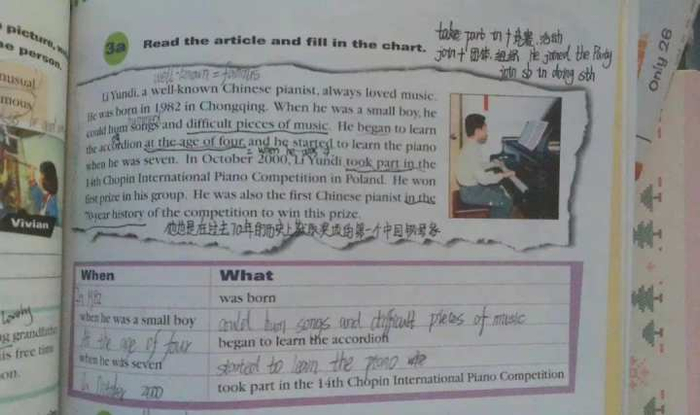 picture,
e person.
nusual
mous
Vivian
Lovely
ng grandfathe
is free time
on.
take part in + 竞赛、活动
join + 团体、组织 He joined the Party
join sb in doing sth
Only 26
3a Read the article and fill in the chart.
well-known = famous
Li Yundi, a well-known Chinese pianist, always loved music.
He was born in 1982 in Chongqing. When he was a small boy, he
could hum songs and difficult pieces of music. He began to learn
the accordion at the age of four, and he started to learn the piano
= when he was
when he was seven. In October 2000, Li Yundi took part in the
14th Chopin International Piano Competition in Poland. He won
first prize in his group. He was also the first Chinese pianist in the
70-year history of the competition to win this prize.
他也是在过去70年的历史上获此奖项的第一个中国钢琴家
When What
In 1982 was born
when he was a small boy could hum songs and difficult pieces of music
At the age of four began to learn the accordion
when he was seven started to learn the piano
In October 2000 took part in the 14th Chopin International Piano Competition